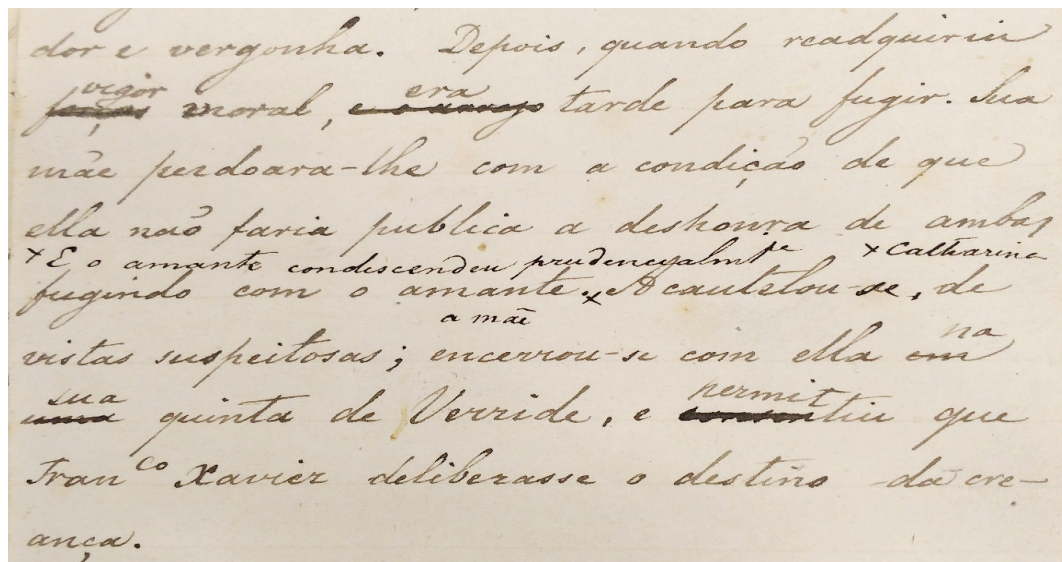 dor e vergonha. Depois, quando readquiriu
vigor
moral, era tarde para fugir. Sua
mãe perdoara-lhe com a condição de que
ella não faria publica a deshonra de ambas
× E o amante condescendeu prudencyalmte × Catharina
fugindo com o amante.× Acautelou-se, de
a mãe
vistas suspeitosas; encerrou-se com ella em na
sua
uma quinta de Verride, e permit
consentiu que
Franco Xavier deliberasse o destino da cre-
ança.